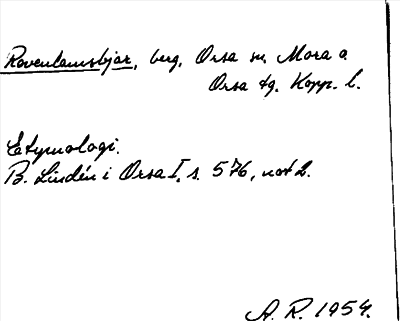 Rovenlamsbjär, berg, Orsa sn, Mora o.
Orsa tg. Kopp. l.
Etymologi.
B. Lindén i Orsa I, s. 576, not 2.
A. R. 1954.